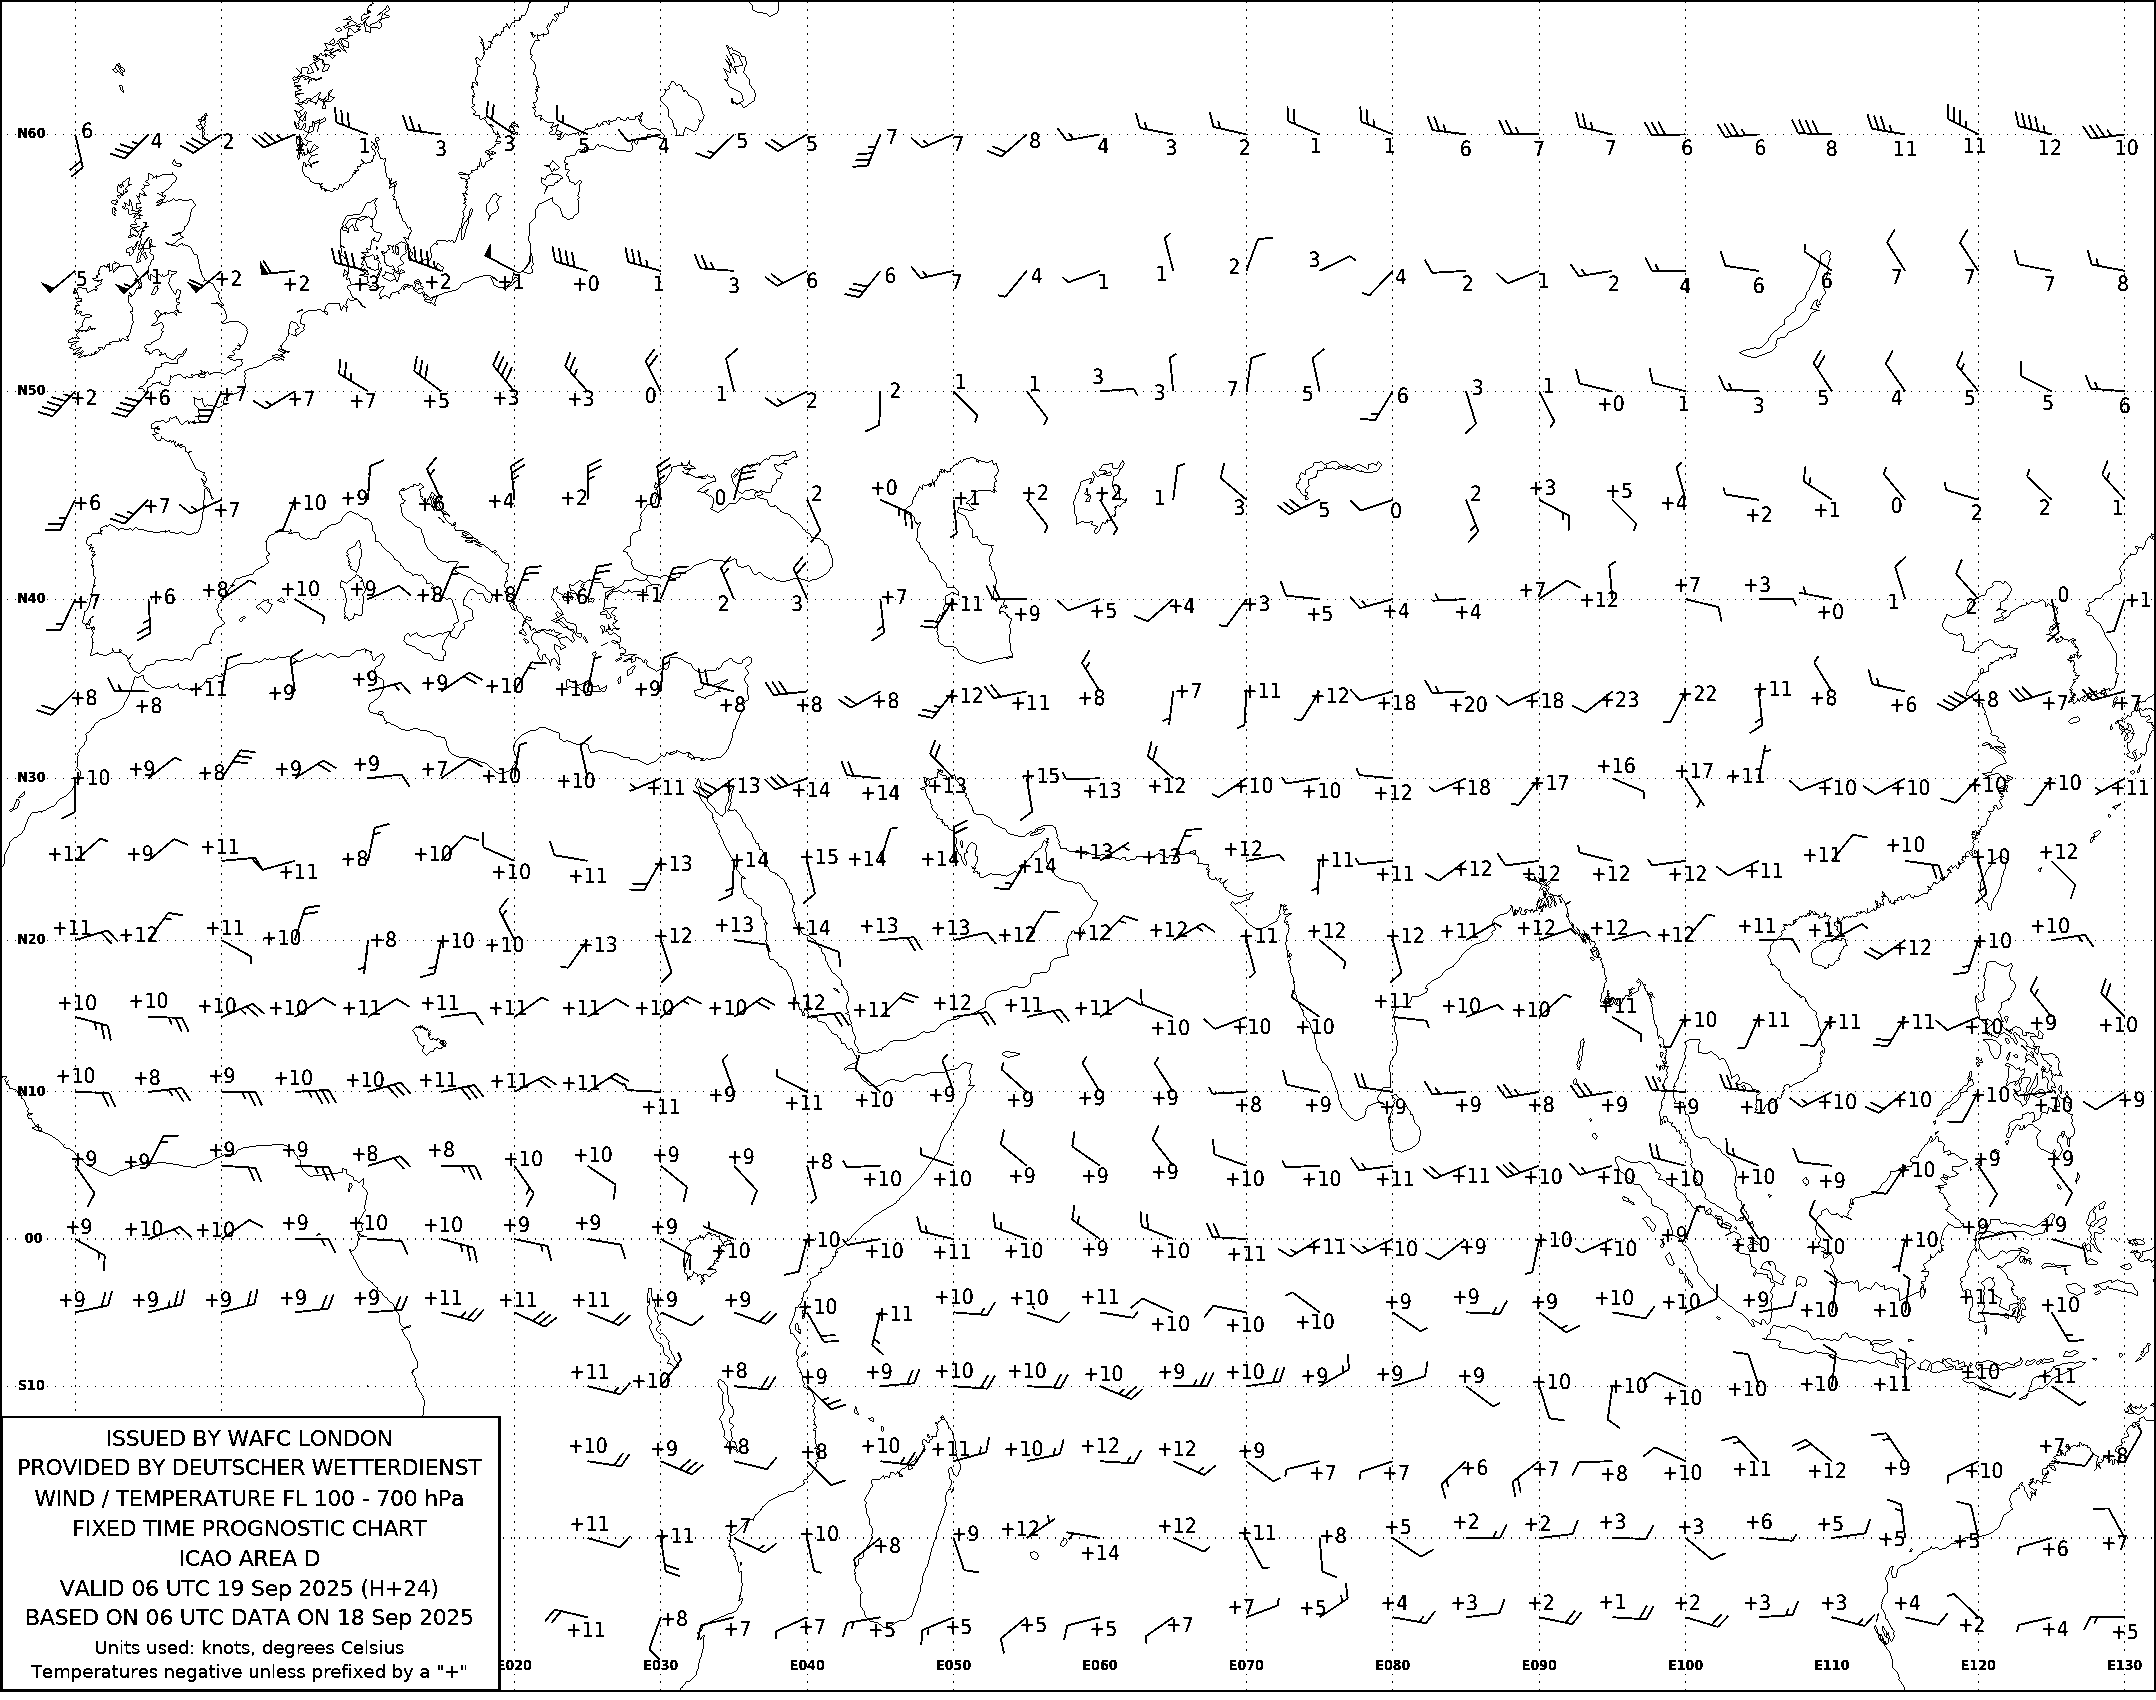 N60 6 4 2 1 3 3 5 4 5 5 7 7 8 4 3 2 1 1 6 7 7 6 6 8 11 11 12 10
5 1 +2 +2 +3 +2 +1 +0 1 3 6 6 7 4 1 1 2 3 4 2 1 2 4 6 6 7 7 7 8
N50 +2 +6 +7 +7 +7 +5 +3 +3 0 1 2 2 1 1 3 3 7 5 6 3 1 +0 1 3 5 4 5 5 6
+6 +7 +7 +10 +9 +6 +4 +2 +0 0 2 +0 +1 +2 +2 1 3 5 0 2 +3 +5 +4 +2 +1 0 2 2 1
N40 +7 +6 +8 +10 +9 +8 +8 +6 +1 2 3 +7 +11 +9 +5 +4 +3 +5 +4 +4 +7 +12 +7 +3 +0 1 2 0 +1
+8 +8 +11 +9 +9 +9 +10 +10 +9 +8 +8 +8 +12 +11 +8 +7 +11 +12 +18 +20 +18 +23 +22 +11 +8 +6 +8 +7 +7
N30 +10 +9 +8 +9 +9 +7 +10 +10 +11 +13 +14 +14 +13 +15 +13 +12 +10 +10 +12 +18 +17 +16 +17 +11 +10 +10 +10 +10 +11
+11 +9 +11 +11 +8 +10 +10 +11 +13 +14 +15 +14 +14 +14 +13 +13 +12 +11 +11 +12 +12 +12 +12 +11 +11 +10 +10 +12
N20 +11 +12 +11 +10 +8 +10 +10 +13 +12 +13 +14 +13 +13 +12 +12 +12 +11 +12 +12 +11 +12 +12 +12 +11 +11 +12 +10 +10
+10 +10 +10 +10 +11 +11 +11 +11 +10 +10 +12 +11 +12 +11 +11 +10 +10 +10 +11 +10 +10 +11 +10 +11 +11 +11 +10 +9 +10
N10 +10 +8 +9 +10 +10 +11 +11 +11 +11 +9 +11 +10 +9 +9 +9 +9 +8 +9 +9 +9 +8 +9 +9 +10 +10 +10 +10 +10 +9
+9 +9 +9 +9 +8 +8 +10 +10 +9 +9 +8 +10 +10 +9 +9 +9 +10 +10 +11 +11 +10 +10 +10 +10 +9 +10 +9 +9
00 +9 +10 +10 +9 +10 +10 +9 +9 +9 +10 +10 +10 +11 +10 +9 +10 +11 +11 +10 +9 +10 +10 +9 +10 +10 +10 +9 +9
+9 +9 +9 +9 +9 +11 +11 +11 +9 +9 +10 +11 +10 +10 +11 +10 +10 +10 +9 +9 +9 +10 +10 +9 +10 +10 +11 +10
S10 +11 +10 +8 +9 +9 +10 +10 +10 +9 +10 +9 +9 +9 +10 +10 +10 +10 +10 +11 +10 +11
+10 +9 +8 +8 +10 +11 +10 +12 +12 +9 +7 +7 +6 +7 +8 +10 +11 +12 +9 +10 +7 +8
+11 +11 +7 +10 +8 +9 +12 +14 +12 +11 +8 +5 +2 +2 +3 +3 +6 +5 +5 +5 +6 +7
+11 +8 +7 +7 +5 +5 +5 +5 +7 +7 +5 +4 +3 +2 +1 +2 +3 +3 +4 +2 +4 +5
ISSUED BY WAFC LONDON
PROVIDED BY DEUTSCHER WETTERDIENST
WIND / TEMPERATURE FL 100 - 700 hPa
FIXED TIME PROGNOSTIC CHART
ICAO AREA D
VALID 06 UTC 19 Sep 2025 (H+24)
BASED ON 06 UTC DATA ON 18 Sep 2025
Units used: knots, degrees Celsius
Temperatures negative unless prefixed by a "+"
E020 E030 E040 E050 E060 E070 E080 E090 E100 E110 E120 E130